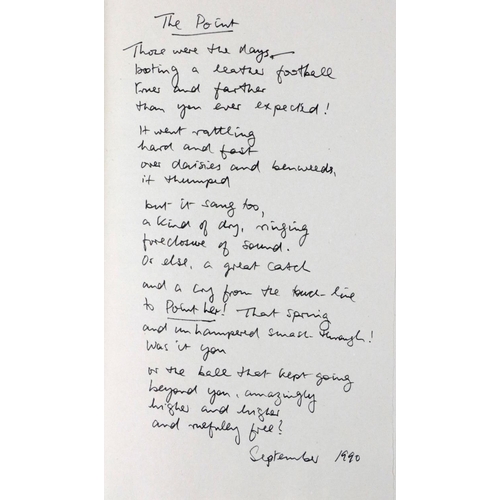 The Point
Those were the days—
booting a leather football
truer and farther
than you ever expected!
It went rattling
hard and fast
over daisies and benweeds,
it thumped
but it sang too,
a kind of dry, ringing
foreclosure of sound.
Or else, a great catch
and a cry from the touch line
to Point her! That spring
and unhampered smash-through!
Was it you
or the ball that kept going
beyond you, amazingly
higher and higher
and ruefully free?
September 1990